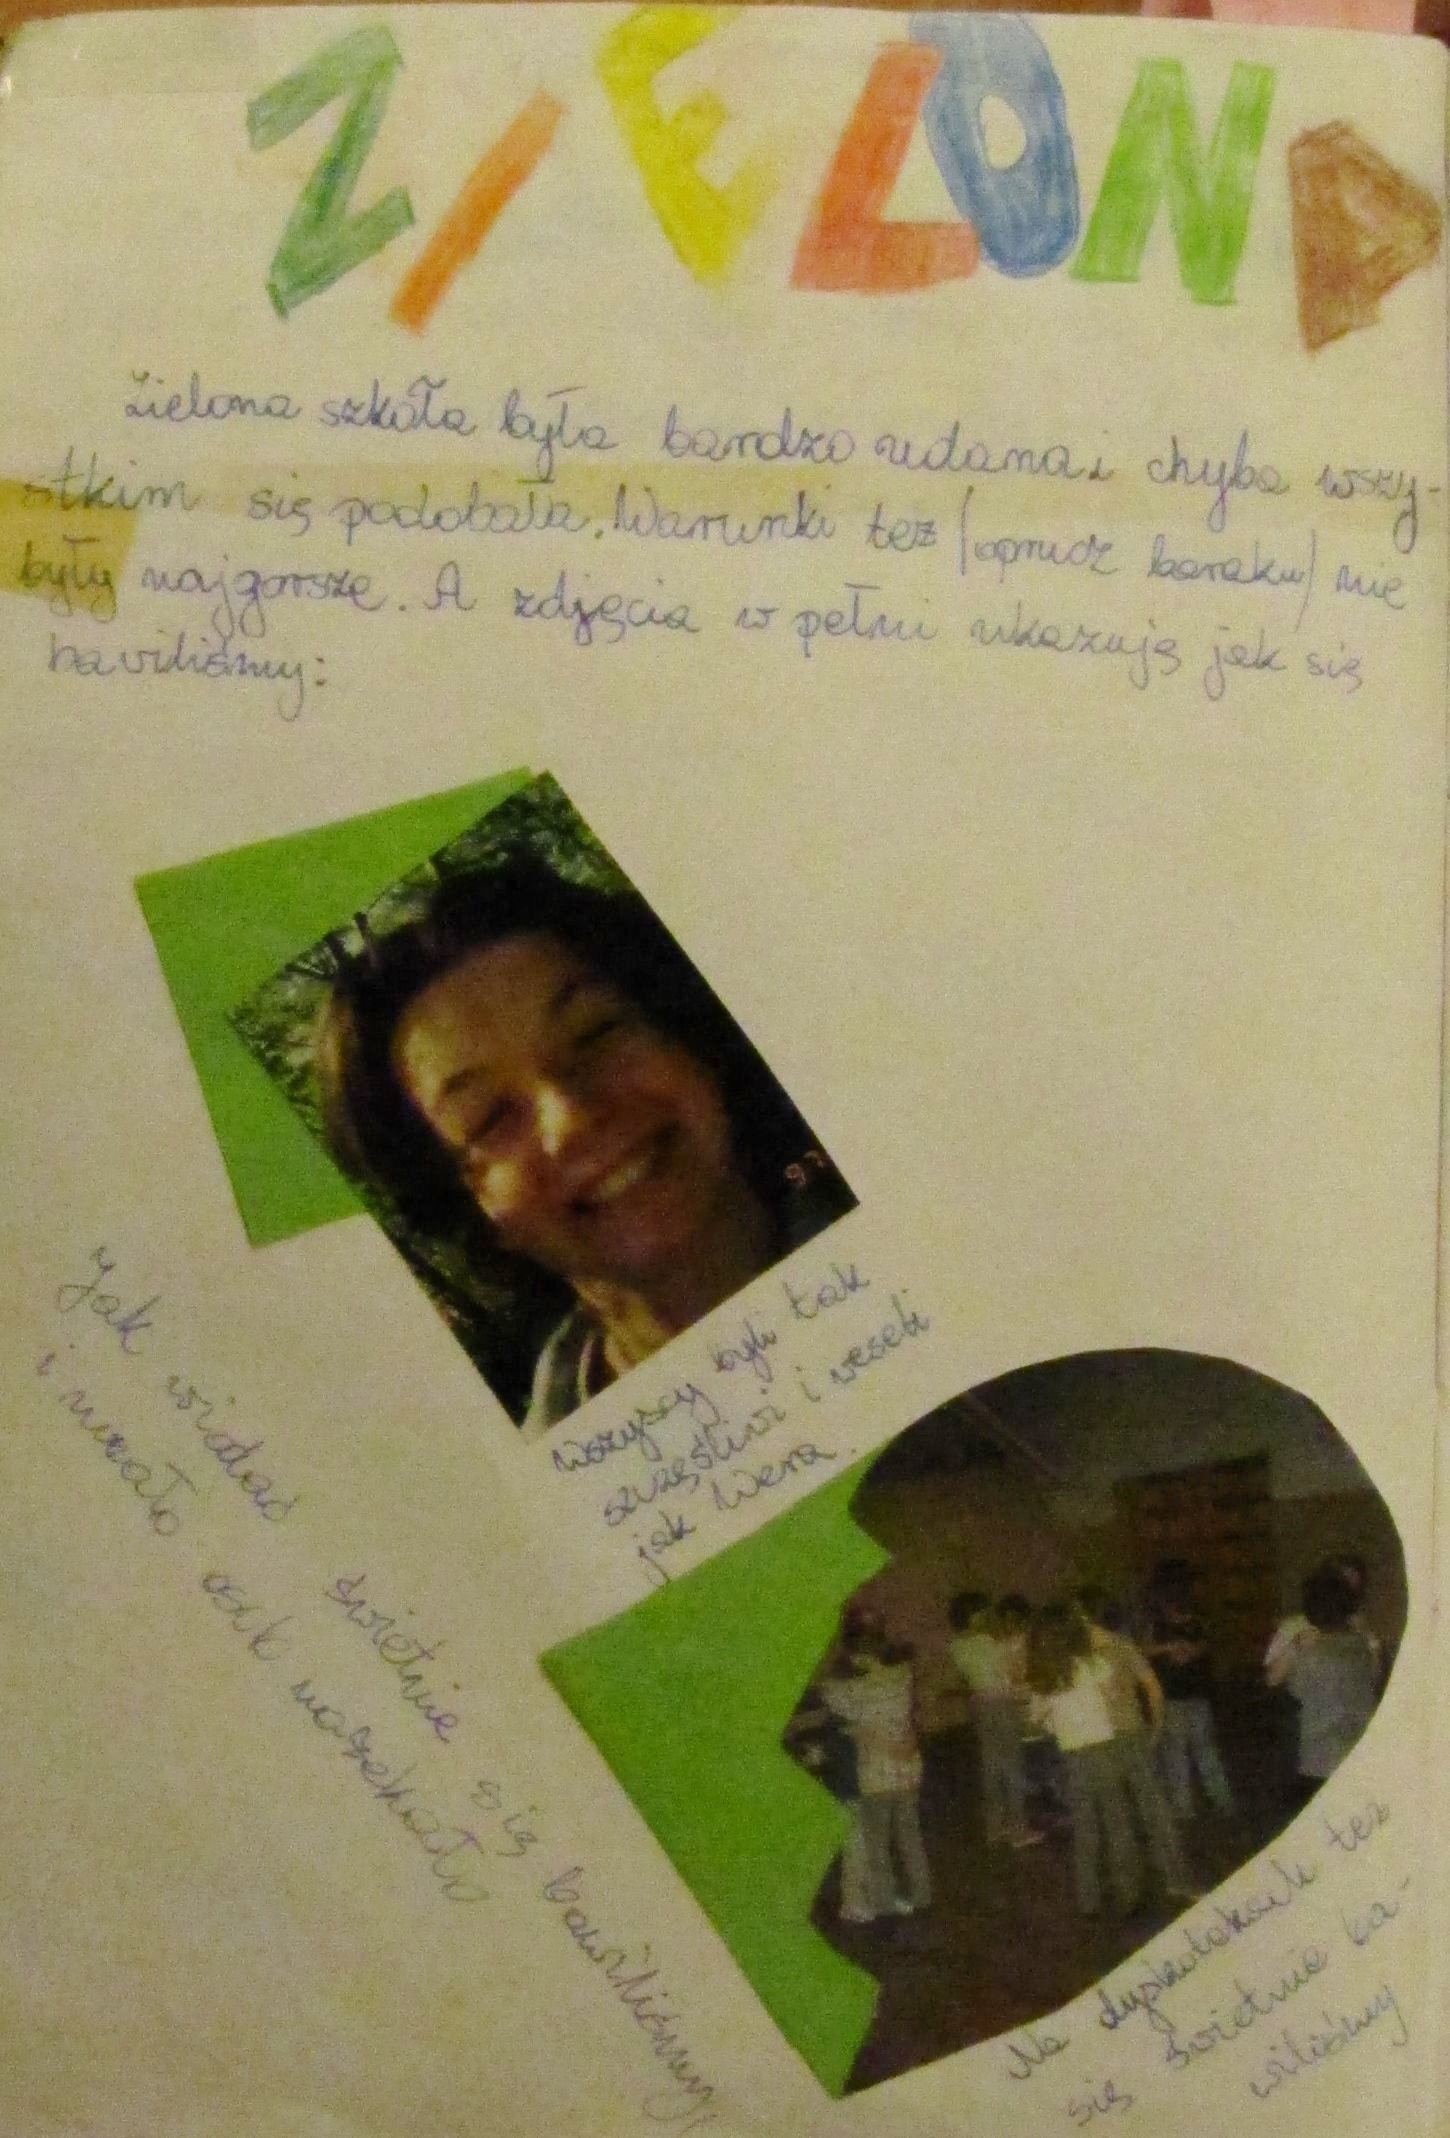 ZIELONA
Zielona szkoła była bardzo udana i chyba wszy-
stkim się podobała. Warunki też (oprucz baraku) nie
były najgorsze. A zdjęcia w pełni ukazują jak się
baviliśmy:
97
Wszyscy byli tak
szczęśliwi i weseli
jak Wera.
Jak widać świetnie się bawiliśmy,
i mało osub nażekało
Na dyskotekach też
się świetnie ba-
wiliśmy